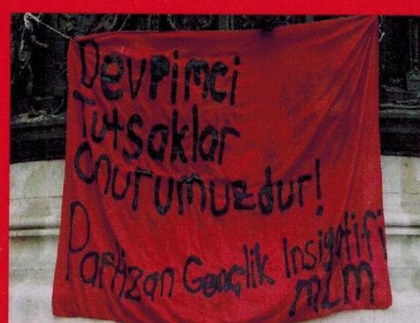 Devrimci
Tutsaklar
Onurumuzdur!
Partizan Gençlik Insiyatifi
MLM